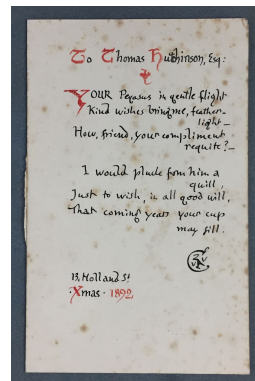 To Thomas Hutchinson, Esq:
YOUR Pegasus in gentle flight
Kind wishes bring me, feather-
light —
How, friend, your compliment
requite? —
I would pluck from him a
quill,
Just to wish, in all good will,
That coming years your cup
may fill.
13, Holland St
Xmas · 1892